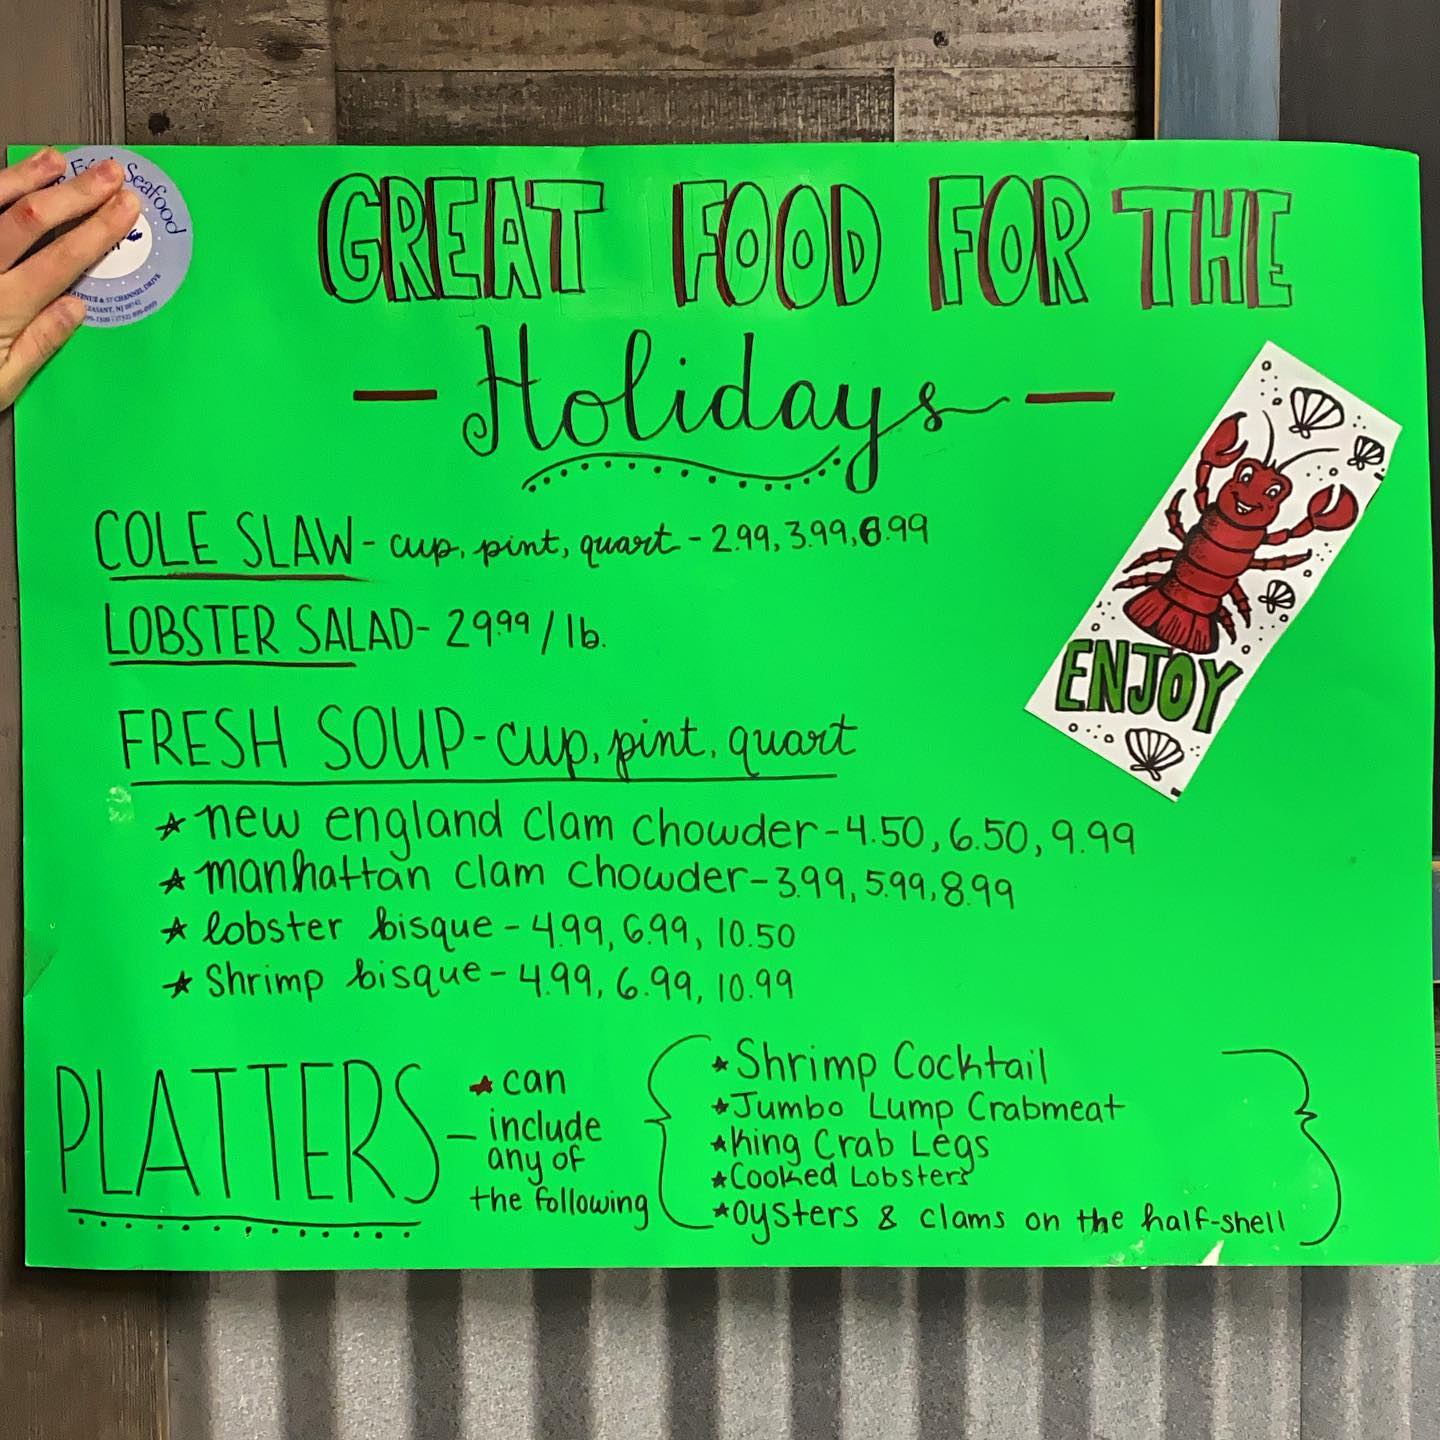 Seafood
AVENUE & 57 CHANNEL DRIVE
GREAT FOOD FOR THE
- Holidays -
COLE SLAW - cup, pint, quart - 2.99, 3.99, 6.99
LOBSTER SALAD - 29.99 / lb.
FRESH SOUP - cup, pint, quart
★ new england clam chowder - 4.50, 6.50, 9.99
★ manhattan clam chowder - 3.99, 5.99, 8.99
★ lobster bisque - 4.99, 6.99, 10.50
★ Shrimp bisque - 4.99, 6.99, 10.99
ENJOY
PLATTERS -
★ can
include
any of
the following
★ Shrimp Cocktail
★ Jumbo Lump Crabmeat
★ King Crab Legs
★ Cooked Lobsters
★ oysters & clams on the half-shell